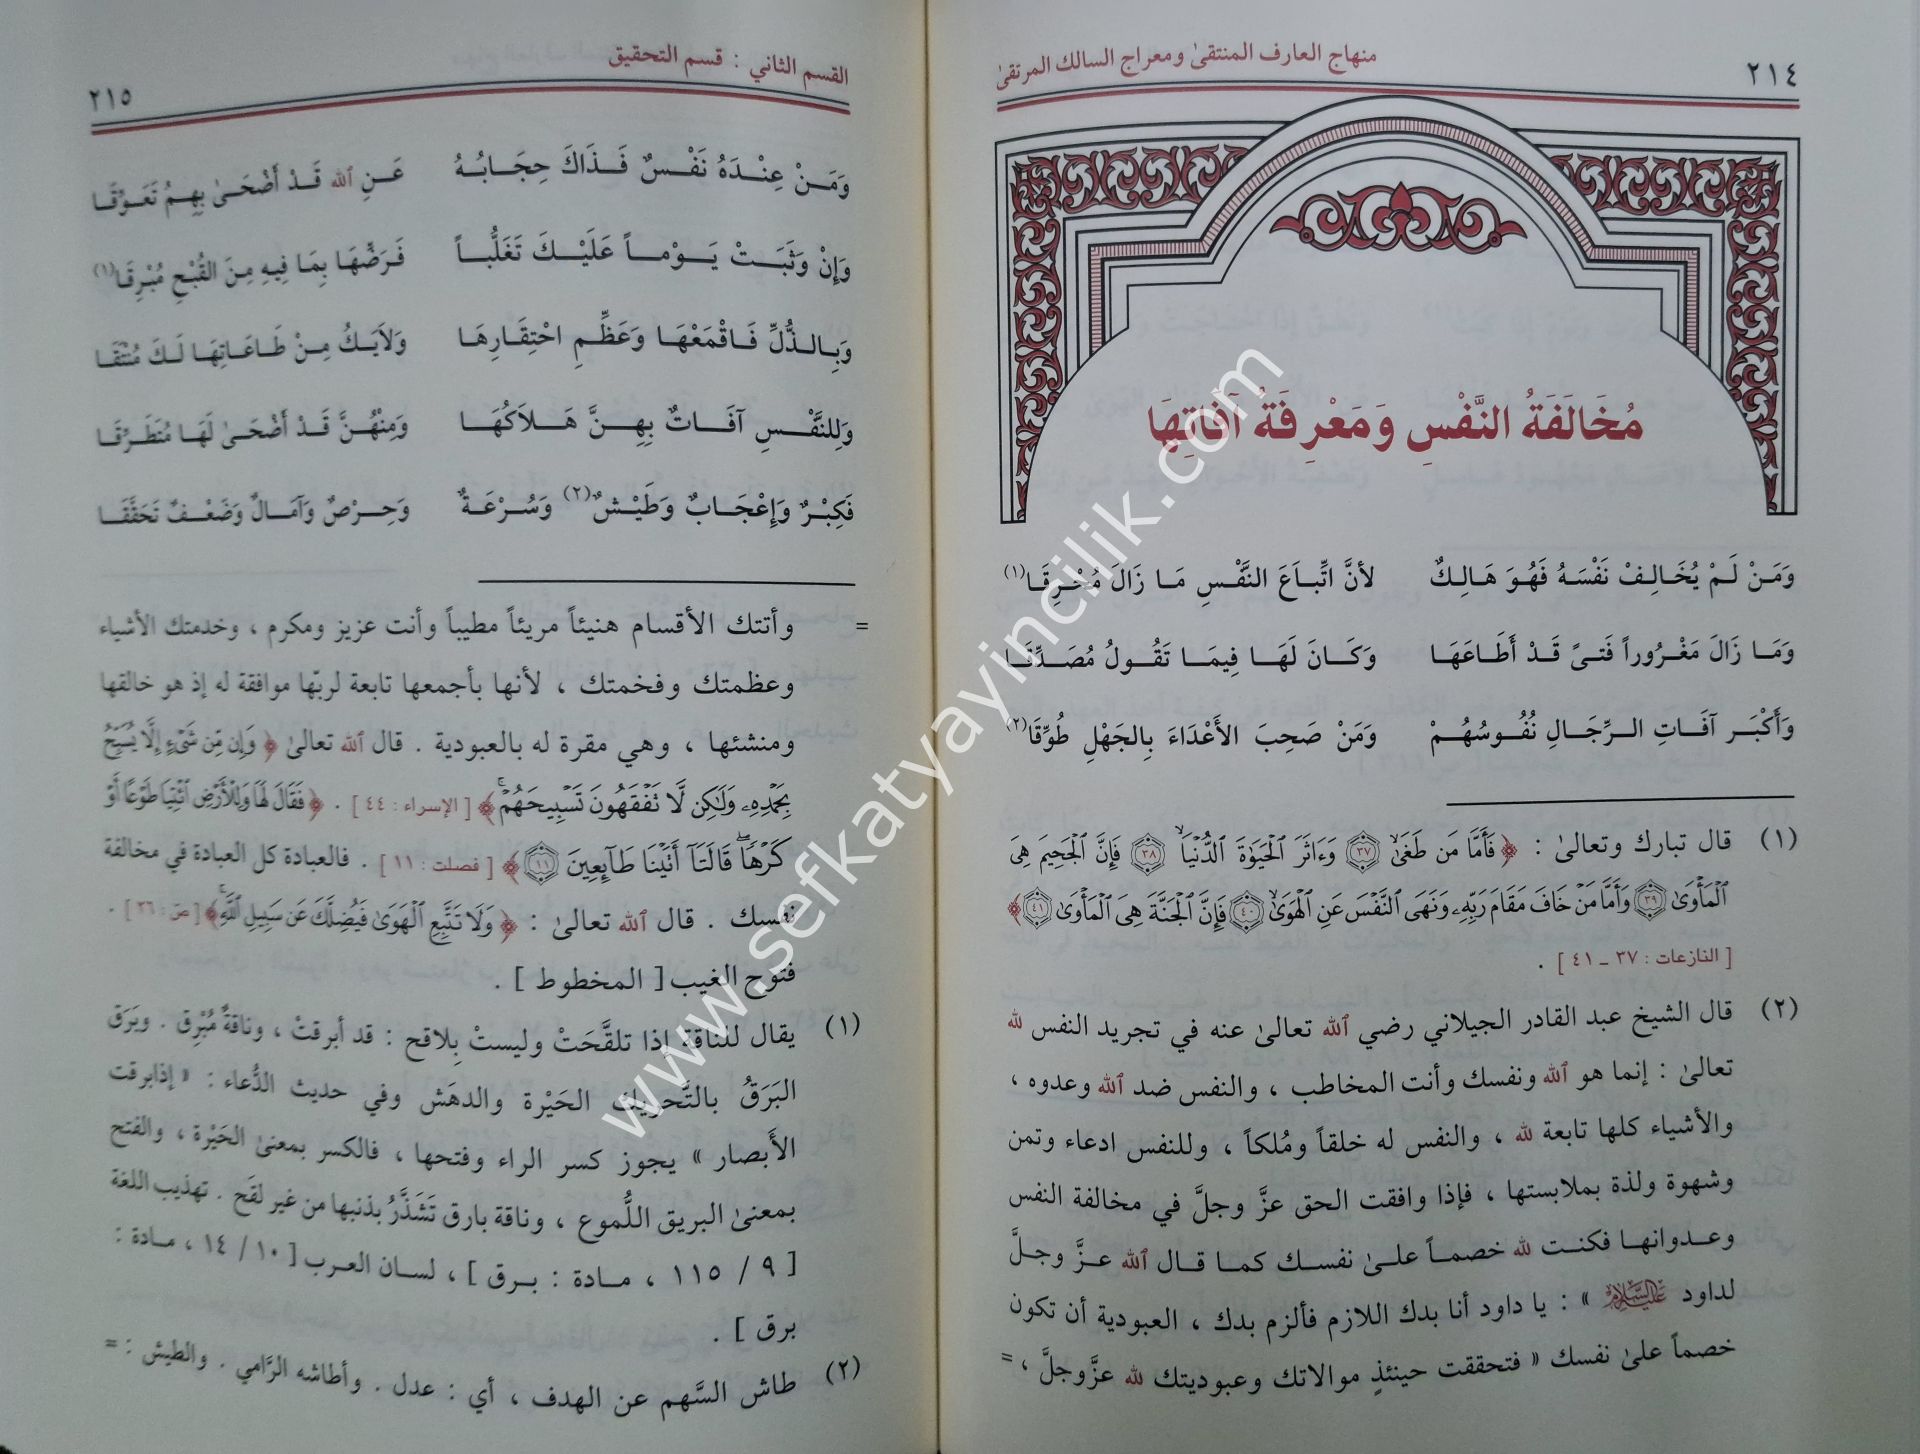 ٢١٤
منهاج العارف المنتقىٰ ومعراج السالك المرتقىٰ
مُخَالَفَةُ النَّفْسِ وَمَعْرِفَةُ آفَاتِهَا
وَمَنْ لَمْ يُخَالِفْ نَفْسَهُ فَهُوَ هَالِكٌ لأنَّ اتِّبَاعَ النَّفْسِ مَا زَالَ مُحْرِقَا(١)
وَمَا زَالَ مَغْرُوراً فَتىً قَدْ أَطَاعَهَا وَكَانَ لَهَا فِيمَا تَقُولُ مُصَدِّقَا
وَأَكْبَر آفَاتِ الرِّجَالِ نُفُوسُهُمْ وَمَنْ صَحِبَ الأَعْدَاءَ بِالجَهْلِ طُوِّقَا(٢)
(١) قال تبارك وتعالىٰ : ﴿ فَأَمَّا مَن طَغَىٰ ٣٧ وَءَاثَرَ الْحَيَوٰةَ الدُّنْيَا ٣٨ فَإِنَّ الْجَحِيمَ هِىَ
الْمَأْوَىٰ ٣٩ وَأَمَّا مَنْ خَافَ مَقَامَ رَبِّهِۦ وَنَهَى النَّفْسَ عَنِ الْهَوَىٰ ٤٠ فَإِنَّ الْجَنَّةَ هِىَ الْمَأْوَىٰ ٤١ ﴾
[ النازعات : ٣٧ ـ ٤١ ] .
(٢) قال الشيخ عبد القادر الجيلاني رضي الله تعالىٰ عنه في تجريد النفس لله
تعالىٰ : إنما هو الله ونفسك وأنت المخاطب ، والنفس ضد الله وعدوه ،
والأشياء كلها تابعة لله ، والنفس له خلقاً ومُلكاً ، وللنفس ادعاء وتمن
وشهوة ولذة بملابستها ، فإذا وافقت الحق عزَّ وجلَّ في مخالفة النفس
وعدوانها فكنت لله خصماً علىٰ نفسك كما قال الله عزَّ وجلَّ
لداود عليه السلام » : يا داود أنا بدك اللازم فألزم بدك ، العبودية أن تكون
خصماً علىٰ نفسك « فتحققت حينئذٍ موالاتك وعبوديتك لله عزَّوجلَّ ، =
القسم الثاني : قسم التحقيق
٢١٥
وَمَنْ عِنْدَهُ نَفْسٌ فَذَاكَ حِجَابُهُ عَنِ الله قَدْ أَضْحَىٰ بِهِمُ تَعَوُّقَا
وَإِنْ وَثَبَتْ يَوْماً عَلَيْكَ تَغَلُّباً فَرَضْهَا بِمَا فِيهِ مِنَ القُبْحِ مُبْرِقَا(١)
وَبِالذُّلِّ فَاقْمَعْهَا وَعَظِّمِ احْتِقَارِهَا وَلاَيَكُ مِنْ طَاعَاتِهَا لَكَ مُنْتَقَا
وَلِلنَّفْسِ آفَاتٌ بِهِنَّ هَلاَكُهَا وَمِنْهُنَّ قَدْ أَضْحَىٰ لَهَا مُتَطَرِّقَا
فَكِبْرٌ وَإِعْجَابٌ وَطَيْشٌ(٢) وَسُرْعَةٌ وَحِرْصٌ وَآمَالٌ وَضَعْفٌ تَحَقَّقَا
= وأتتك الأقسام هنيئاً مريئاً مطيباً وأنت عزيز ومكرم ، وخدمتك الأشياء
وعظمتك وفخمتك ، لأنها بأجمعها تابعة لربّها موافقة له إذ هو خالقها
ومنشئها ، وهي مقرة له بالعبودية . قال الله تعالىٰ ﴿ وَإِن مِّن شَىْءٍ إِلَّا يُسَبِّحُ
بِحَمْدِهِۦ وَلَٰكِن لَّا تَفْقَهُونَ تَسْبِيحَهُمْ ﴾ [ الإسراء : ٤٤ ] . ﴿ فَقَالَ لَهَا وَلِلْأَرْضِ ائْتِيَا طَوْعًا أَوْ
كَرْهًا قَالَتَا أَتَيْنَا طَآئِعِينَ ١١ ﴾ [ فصلت : ١١ ] . فالعبادة كل العبادة في مخالفة
نفسك . قال الله تعالىٰ : ﴿ وَلَا تَتَّبِعِ الْهَوَىٰ فَيُضِلَّكَ عَن سَبِيلِ اللَّهِ ﴾ [ صۤ : ٢٦ ] .
فتوح الغيب [ المخطوط ] .
(١) يقال للناقة إذا تلقَّحَتْ وليستْ بِلاقح : قد أبرقتْ ، وناقةٌ مُبْرِق . وبَرَق
البَرَقُ بالتَّحريك الحَيْرة والدهَش وفي حديث الدُّعاء : « إذابرقت
الأَبصار » يجوز كسر الراء وفتحها ، فالكسر بمعنىٰ الحَيْرة ، والفتح
بمعنىٰ البريق اللُّموع ، وناقة بارق تَشَذَّرُ بذنبها من غير لقَح . تهذيب اللغة
[ ٩ / ١١٥ ، مادة : برق ] ، لسان العرب [ ١٠ / ١٤ ، مادة :
برق ] .
(٢) طاش السَّهم عن الهدف ، أي : عدل . وأطاشه الرَّامي . والطيش : =
www.sefkatyayincilik.com